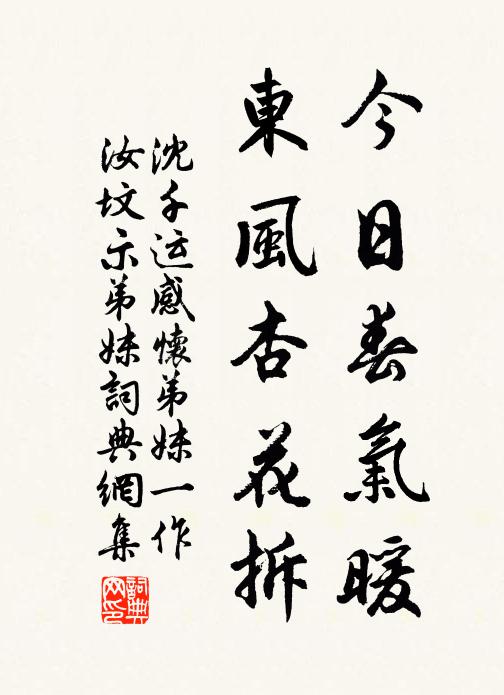 今日春氣暖
東風杏花拆
沈千运感懷弟妹一作
汝墳示弟妹詞典網集
詞典网印